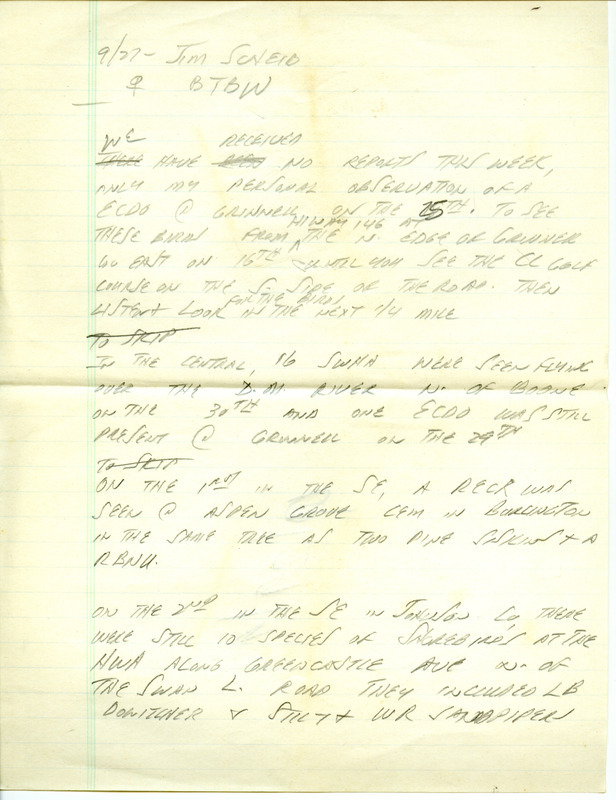 9/27- JIM SCHEIB
♀ BTBW
WE RECEIVED
THERE HAVE BEEN NO REPORTS THIS WEEK,
ONLY MY PERSONAL OBSERVATION OF A
ECDO @ GRINNELL ON THE 25TH. TO SEE
HIWAY 146 AT
THESE BIRDS FROM THE N. EDGE OF GRINNELL
GO EAST ON 16TH UNTIL YOU SEE THE CC GOLF
COURSE ON THE S. SIDE OF THE ROAD. THEN
FOR THE BIRDS
LISTEN & LOOK IN THE NEXT 1/4 MILE
TO SKIP
IN THE CENTRAL, 16 SWHA WERE SEEN FLYING
OVER THE D.M. RIVER N. OF BOONE
ON THE 30TH AND ONE ECDO WAS STILL
PRESENT @ GRINNELL ON THE 29TH
TO SKIP
ON THE 1RST IN THE SE, A RECR WAS
SEEN @ ASPEN GROVE CEM IN BURLINGTON
IN THE SAME TREE AS TWO PINE SISKINS & A
RBNU.
ON THE 2ND IN THE SE IN JOHNSON CO, THERE
WERE STILL 10 SPECIES OF SHOREBIRDS AT THE
HWA ALONG GREENCASTLE AVE N. OF
THE SWAN L. ROAD THEY INCLUDED LB
DOWITCHER & STILT & WR SANDPIPER